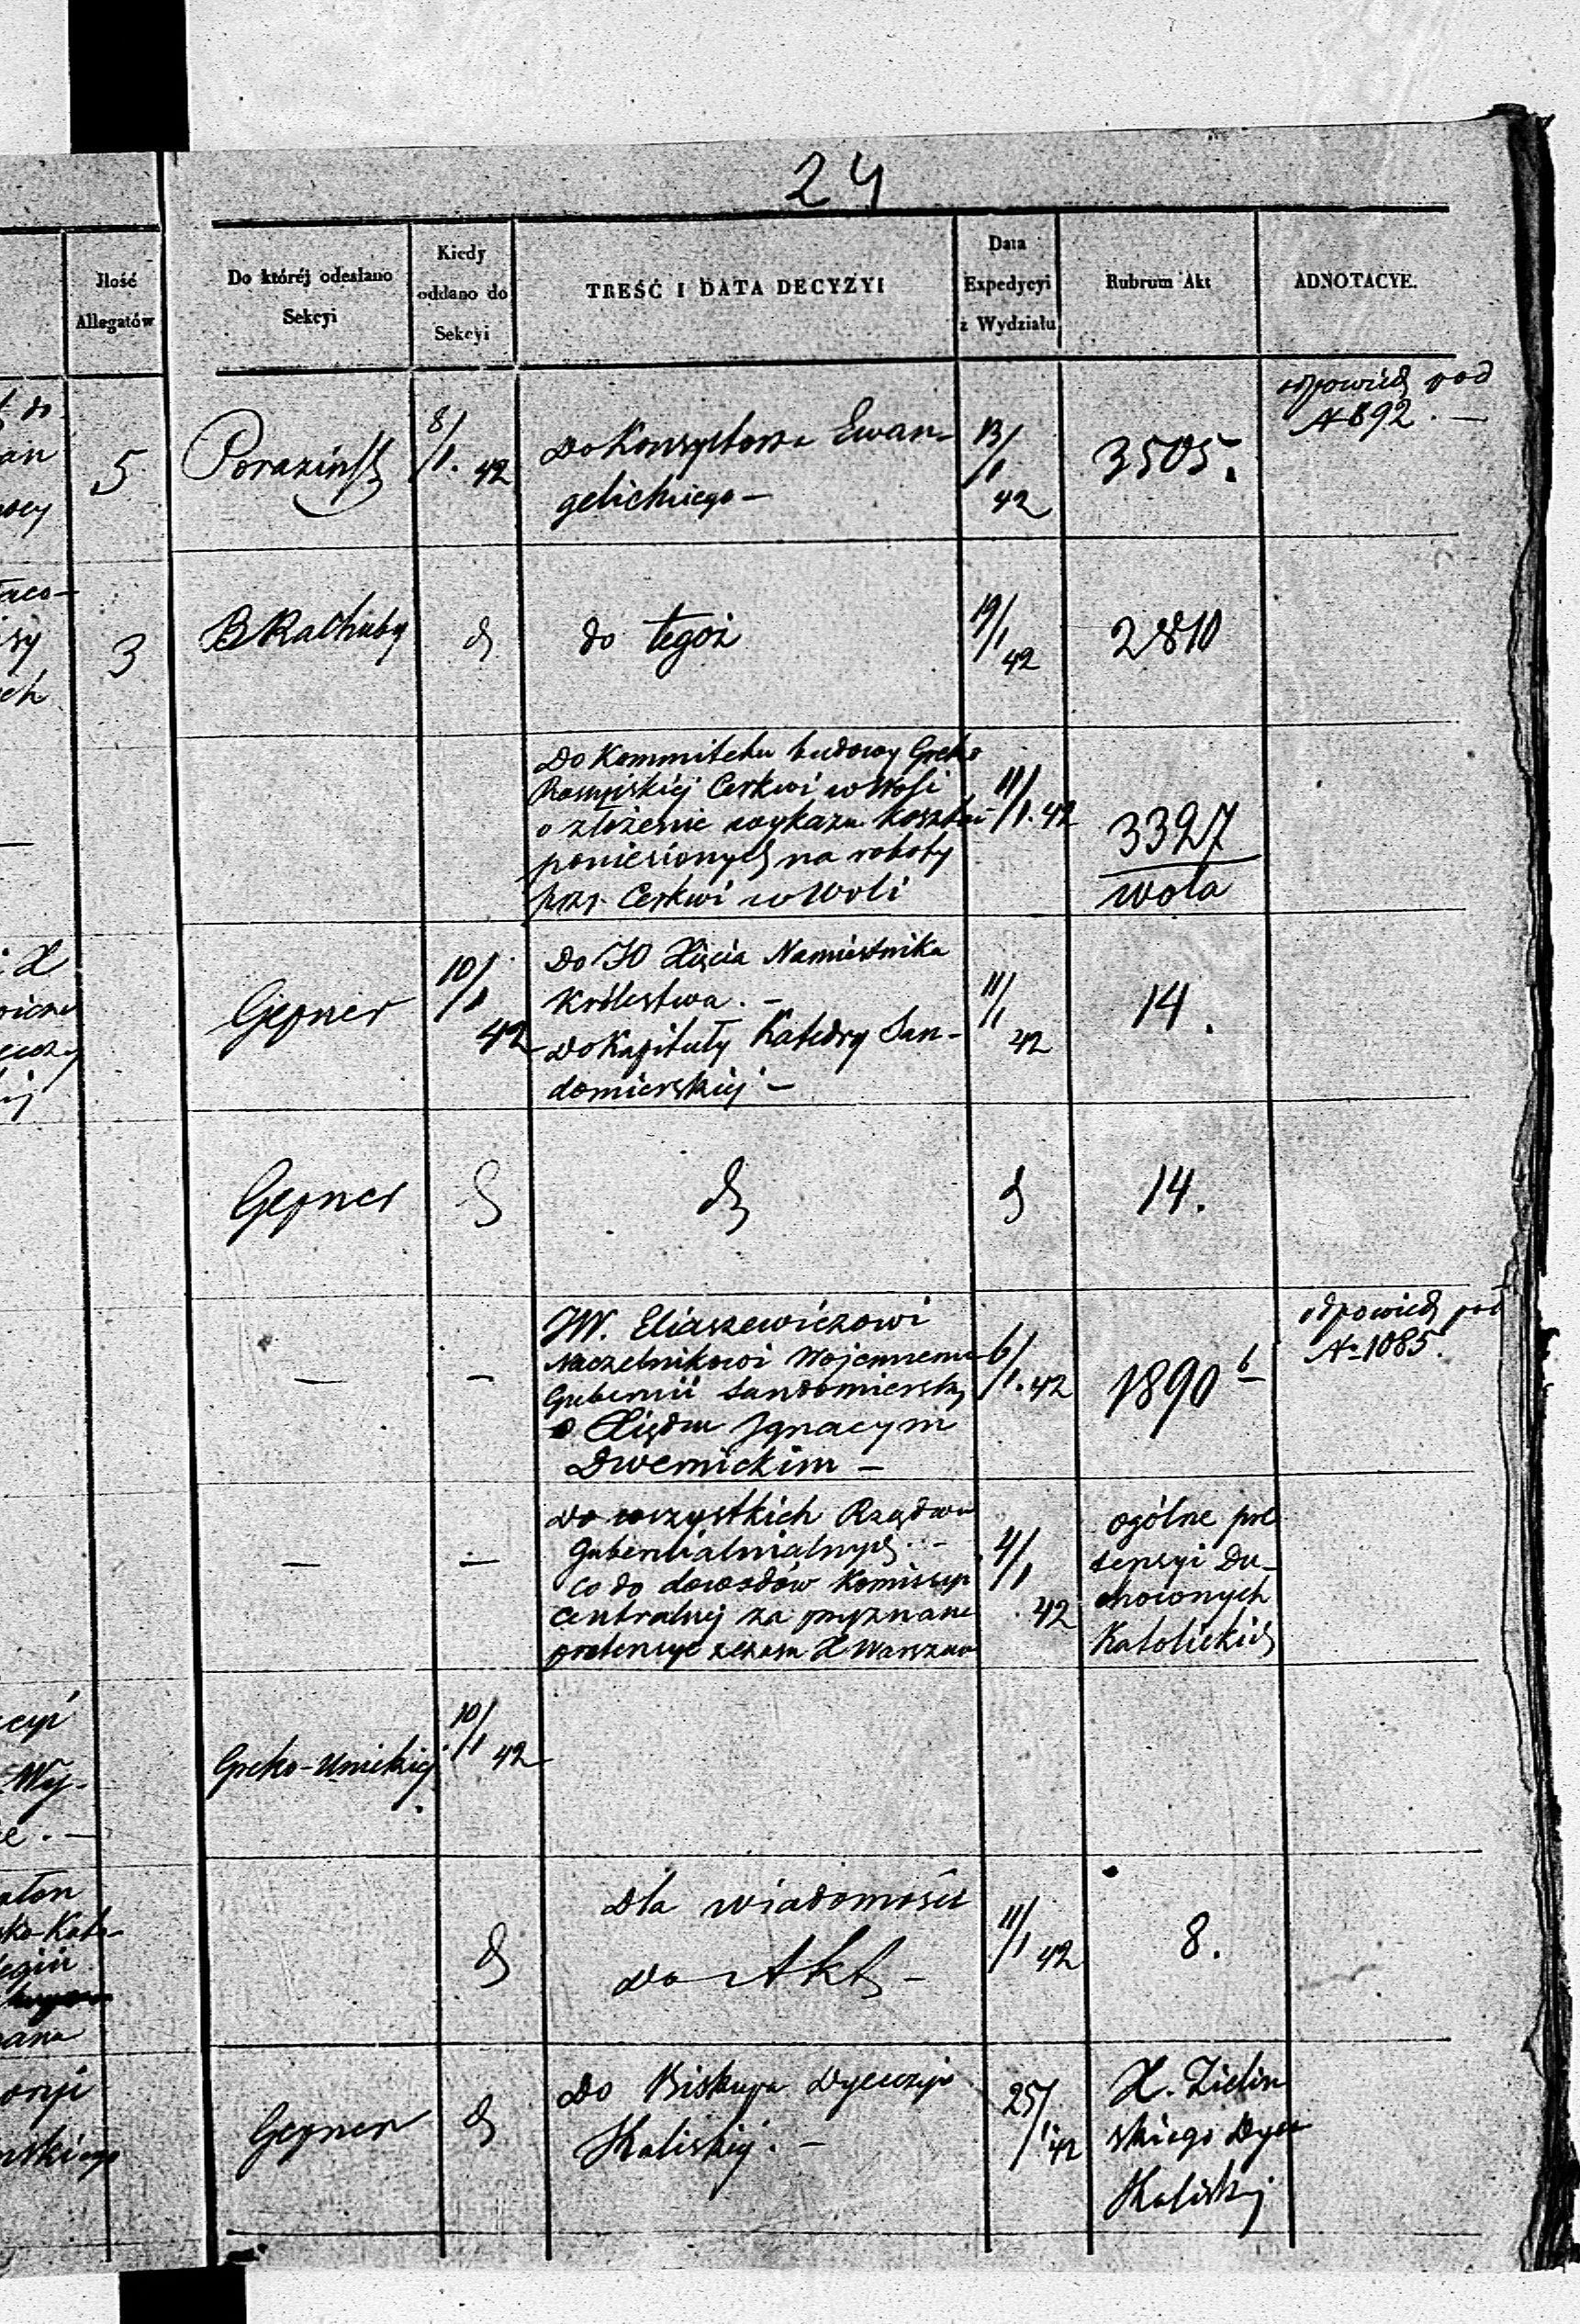 24
Jlość
Allegatów
Do któréj odesłano
Sekcyi
Kiedy
oddano do
Sekcyi
TREŚĆ I DATA DECYZYI
Data
Expedycyi
z Wydziału
Rubrum Akt
ADNOTACYE.
5
Porazińsk
8/1. 42
Do Konsystorza Ewan-
gelickiego —
13/1 42
3505.
odpowiedź pod
N 892. —
3
B Rachuby
do tegoż
19/1 42
2810
Do Kommitetu budowy Greko
Rossyiskiéj Cerkwi w Woli
o złożenie wykazu kosztów
poniesionych na roboty
przy Cerkwi w Woli
11/1. 42
3327
Wola
Gepner
10/1 42
Do JO Xięcia Namiestnika
Królestwa. —
Do Kapituły Katedry San-
domierskiej —
11/1 42
14.
Gepner
14.
—
—
JW. Eliaszewiczowi
Naczelnikowi Wojennemu
Gubernii Sandomiersk
o Xiędzu Jgnacym
Dwernickim —
6/1. 42
1890 b
odpowiedź pod
N 1085.
—
—
do wszystkich Rządów
Gubernialnialnych. —
co do dowodów Komissyi
Centralnej za przyznane
pretensye z czasu X Warszaw
4/1 42
ogólne pre
tensyi Du-
chownych
Katolickich
Greko-Unickiej
10/1 42
Dla wiadomości
do Akt —
11/1 42
8.
Gepner
Do Biskupa Dyecezyi
Kaliskiej. —
25/1 42
X. Zieliń
skiego Dyec
Kaliskiej